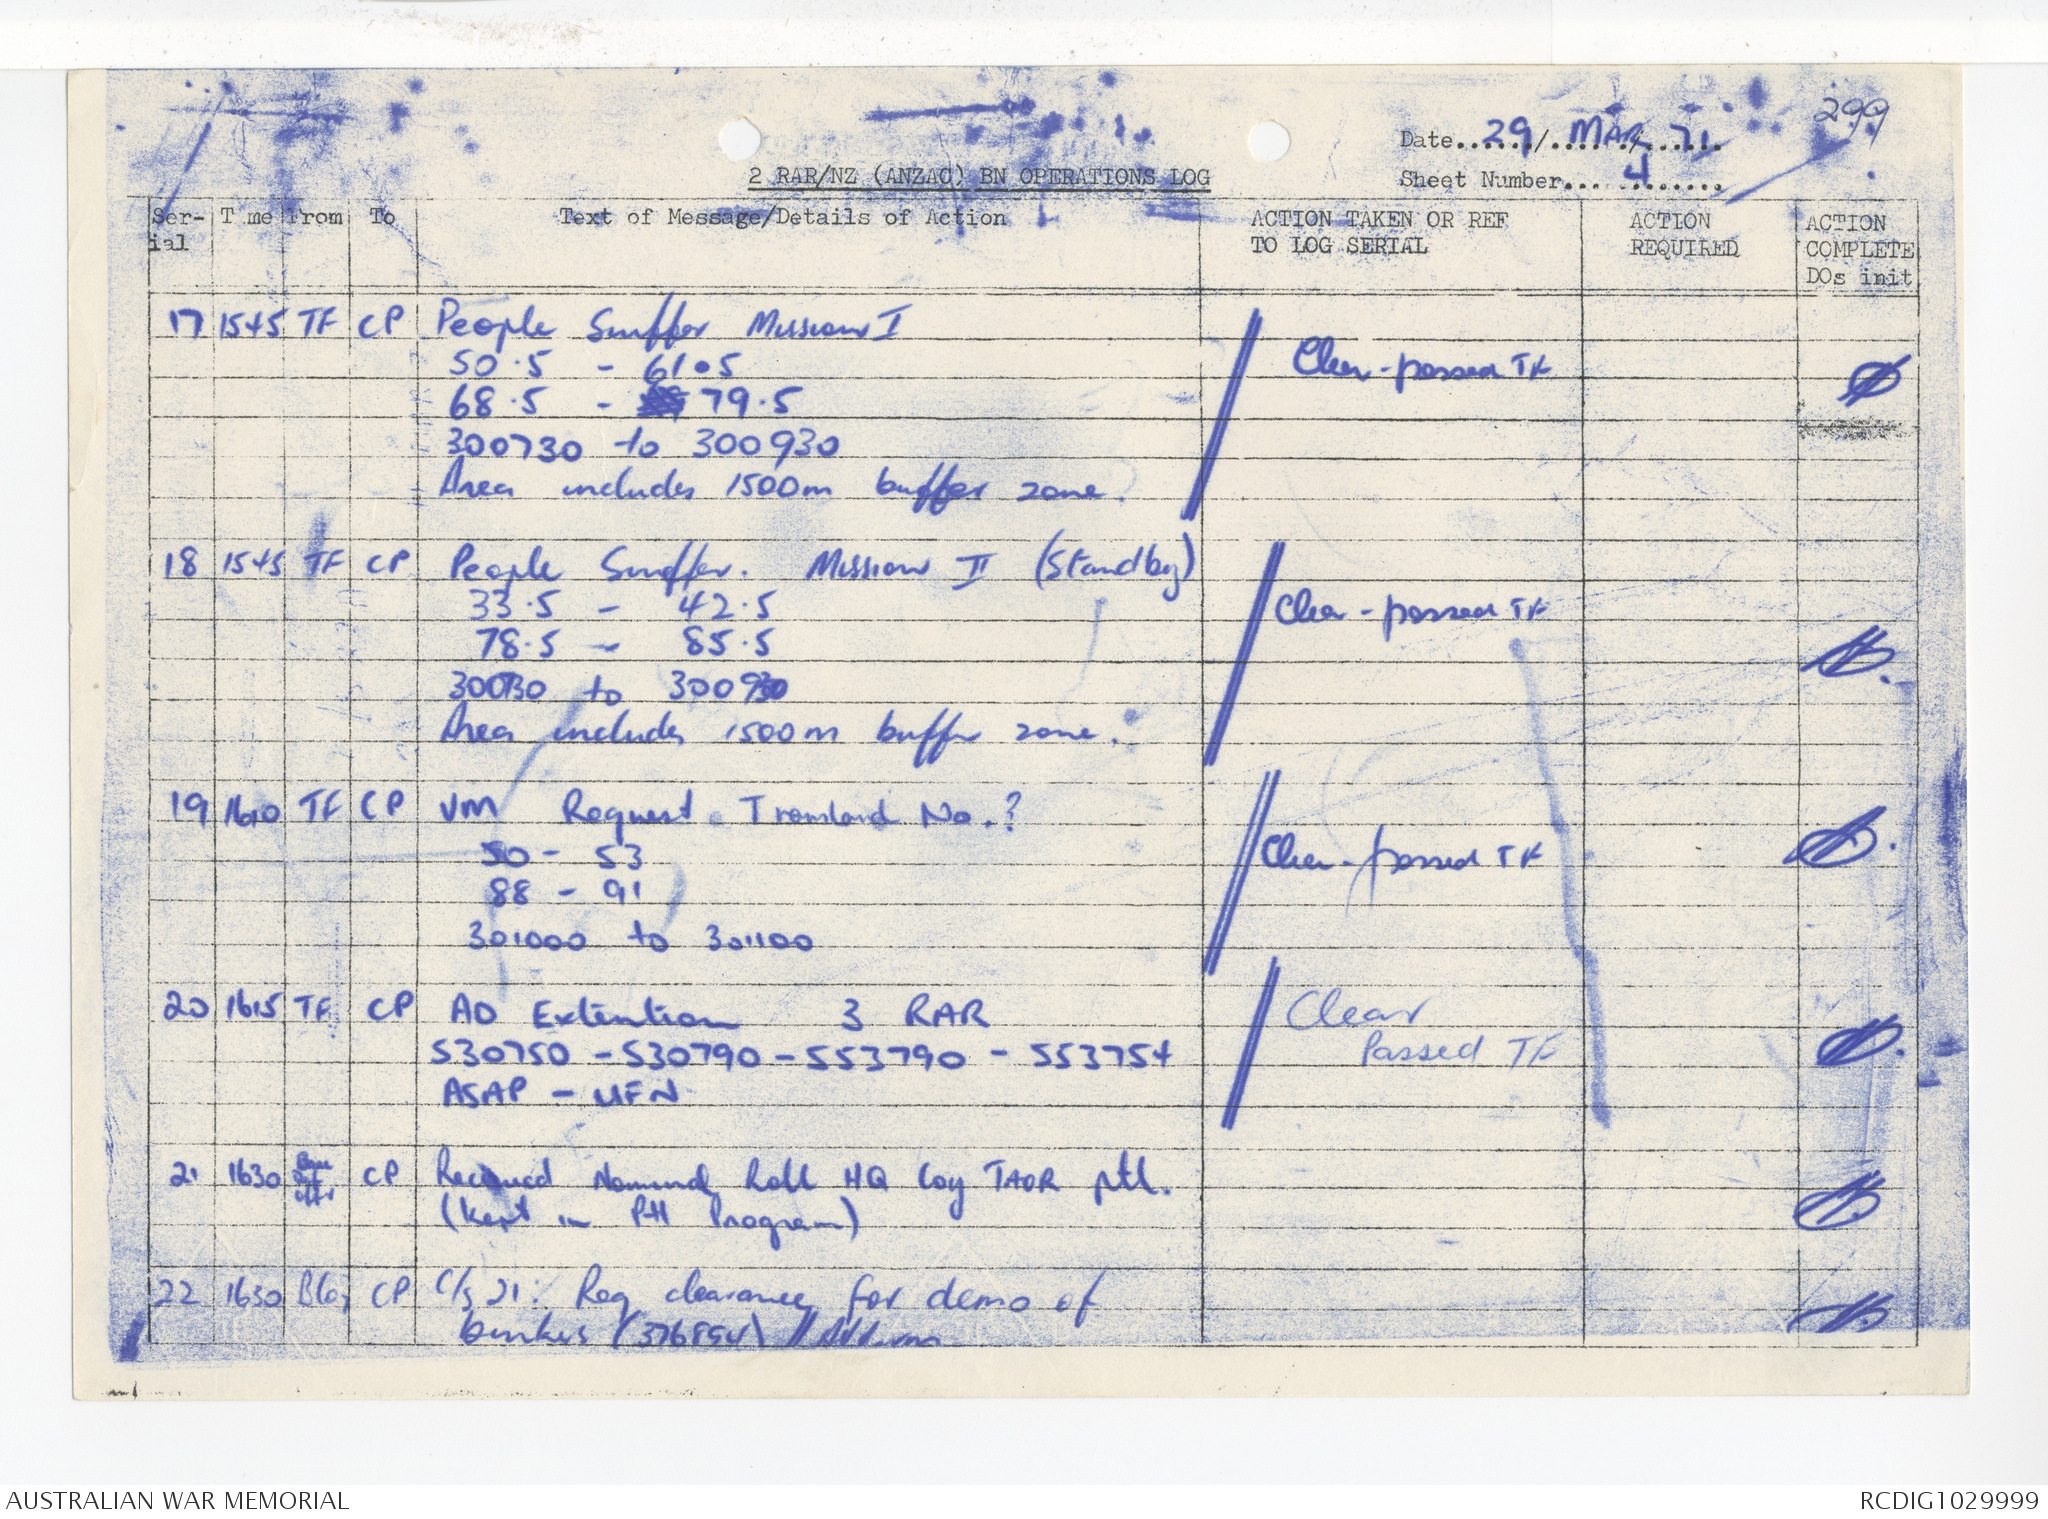 299
Date 29/ MAR / 71
2 RAR/NZ (ANZAC) BN OPERATIONS LOG
Sheet Number 4
Ser-ial Time From To Text of Message/Details of Action ACTION TAKEN OR REF TO LOG SERIAL ACTION REQUIRED ACTION COMPLETE DOs init
17 1545 TF CP People Sniffer Mission I
50.5 - 61.5 Clear - passed TF
68.5 - 79.5
300730 to 300930
Area includes 1500m buffer zone.
18 1545 TF CP People Sniffer. Mission II (Standby)
33.5 - 42.5 Clear - passed TF
78.5 - 85.5
300730 to 300930
Area includes 1500m buffer zone.
19 1610 TF CP VM Request No.?
50 - 53 Clear - passed TF
88 - 91
301000 to 301100
20 1615 TF CP AO Extention 3 RAR Clear
530750 - 530790 - 553790 - 553754 Passed TF
ASAP - UFN
21 1630 CP Received Nominal Roll HQ Coy TAOR ptl.
(Kept in Ptl Program)
22 1630 CP C/S 21: Req clearance for demo of
bunkers (376894)
AUSTRALIAN WAR MEMORIAL
RCDIG1029999